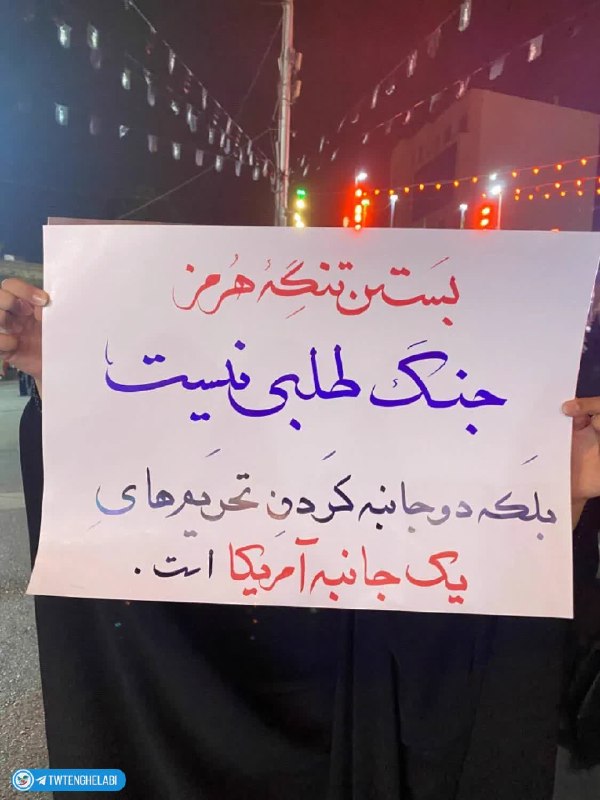 بستن تنگهٔ هرمز
جنگ طلبی نیست
بلکه دو جانبه کردن تحریم های
یک جانبه آمریکا است.
TWTENGHELABI